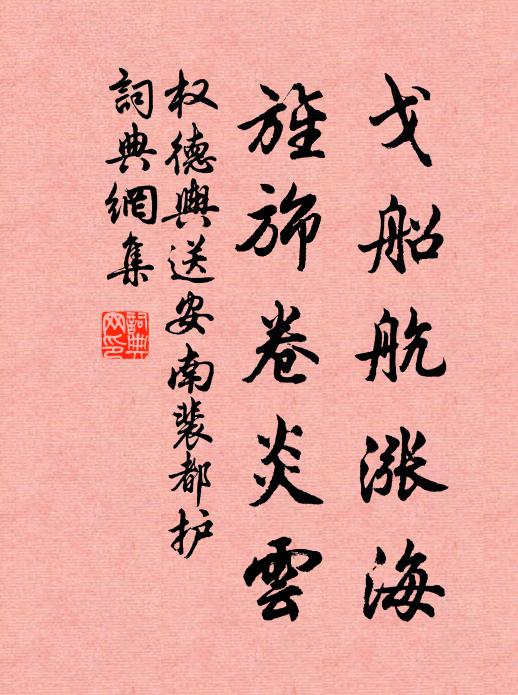 戈船航涨海
旌旆卷炎雲
权德輿送安南裴都护
詞典網集
詞典网印